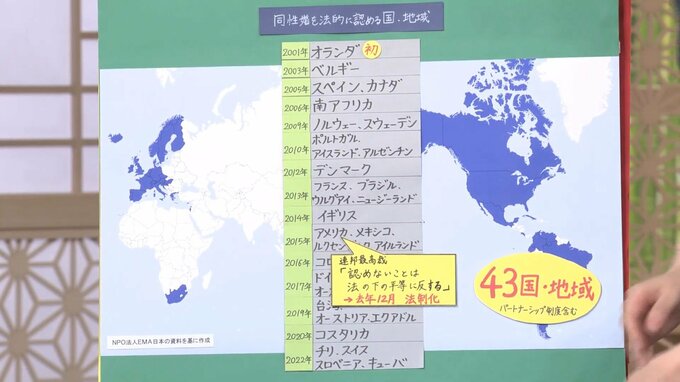 同性婚を法的に認める国・地域
2001年 オランダ 初
2003年 ベルギー
2005年 スペイン、カナダ
2006年 南アフリカ
2009年 ノルウェー、スウェーデン
2010年 ポルトガル、
アイスランド、アルゼンチン
2012年 デンマーク
2013年 フランス、ブラジル、
ウルグアイ、ニュージーランド
2014年 イギリス
2015年 アメリカ、メキシコ、
ルクセン アイルランド
2016年 コロ
2017年 ドイ
オー
2019年 台
オーストリア・エクアドル
2020年 コスタリカ
2022年 チリ、スイス
スロベニア、キューバ
連邦最高裁
「認めないことは
法の下の平等に反する」
→去年12月 法制化
43国・地域
パートナーシップ制度含む
NPO法人EMA日本の資料を基に作成